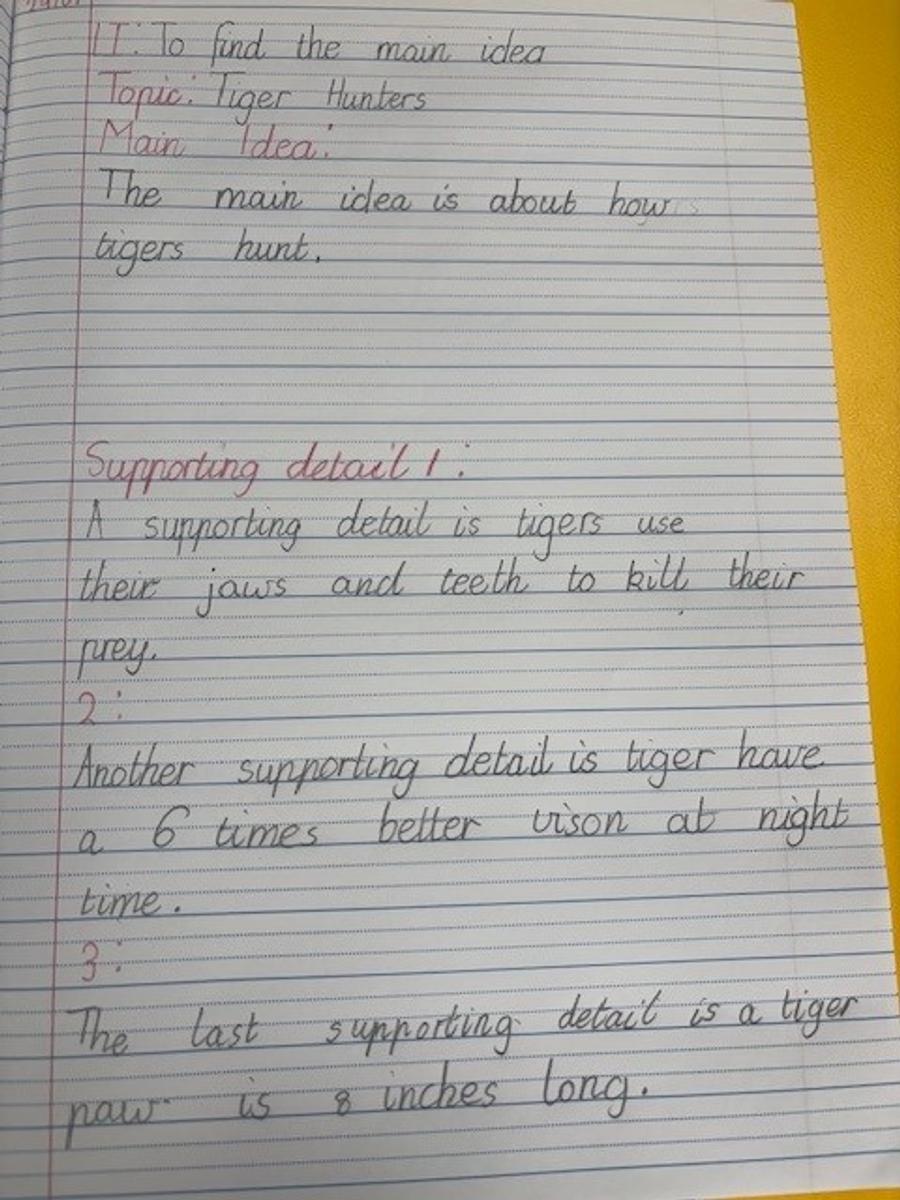 LT: To find the main idea
Topic: Tiger Hunters
Main Idea:
The main idea is about how
tigers hunt.
Supporting detail 1:
A supporting detail is tigers use
their jaws and teeth to kill their
prey.
2:
Another supporting detail is tiger have
a 6 times better vison at night
time.
3:
The last supporting detail is a tiger
paw is 8 inches long.